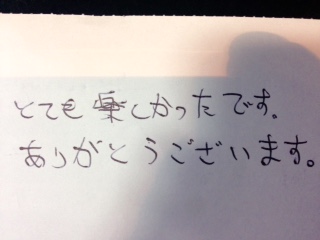 とても楽しかったです。
ありがとうございます。